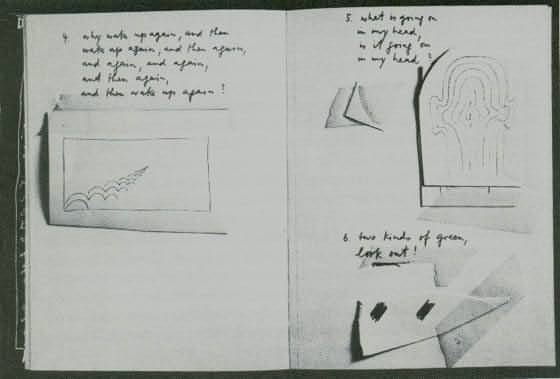 4. why wake up again, and then
wake up again, and then again,
and again, and again,
and then again,
and then wake up again!
5. what is going on
in my head,
is it going on
in my head?
6. two kinds of green,
look out!